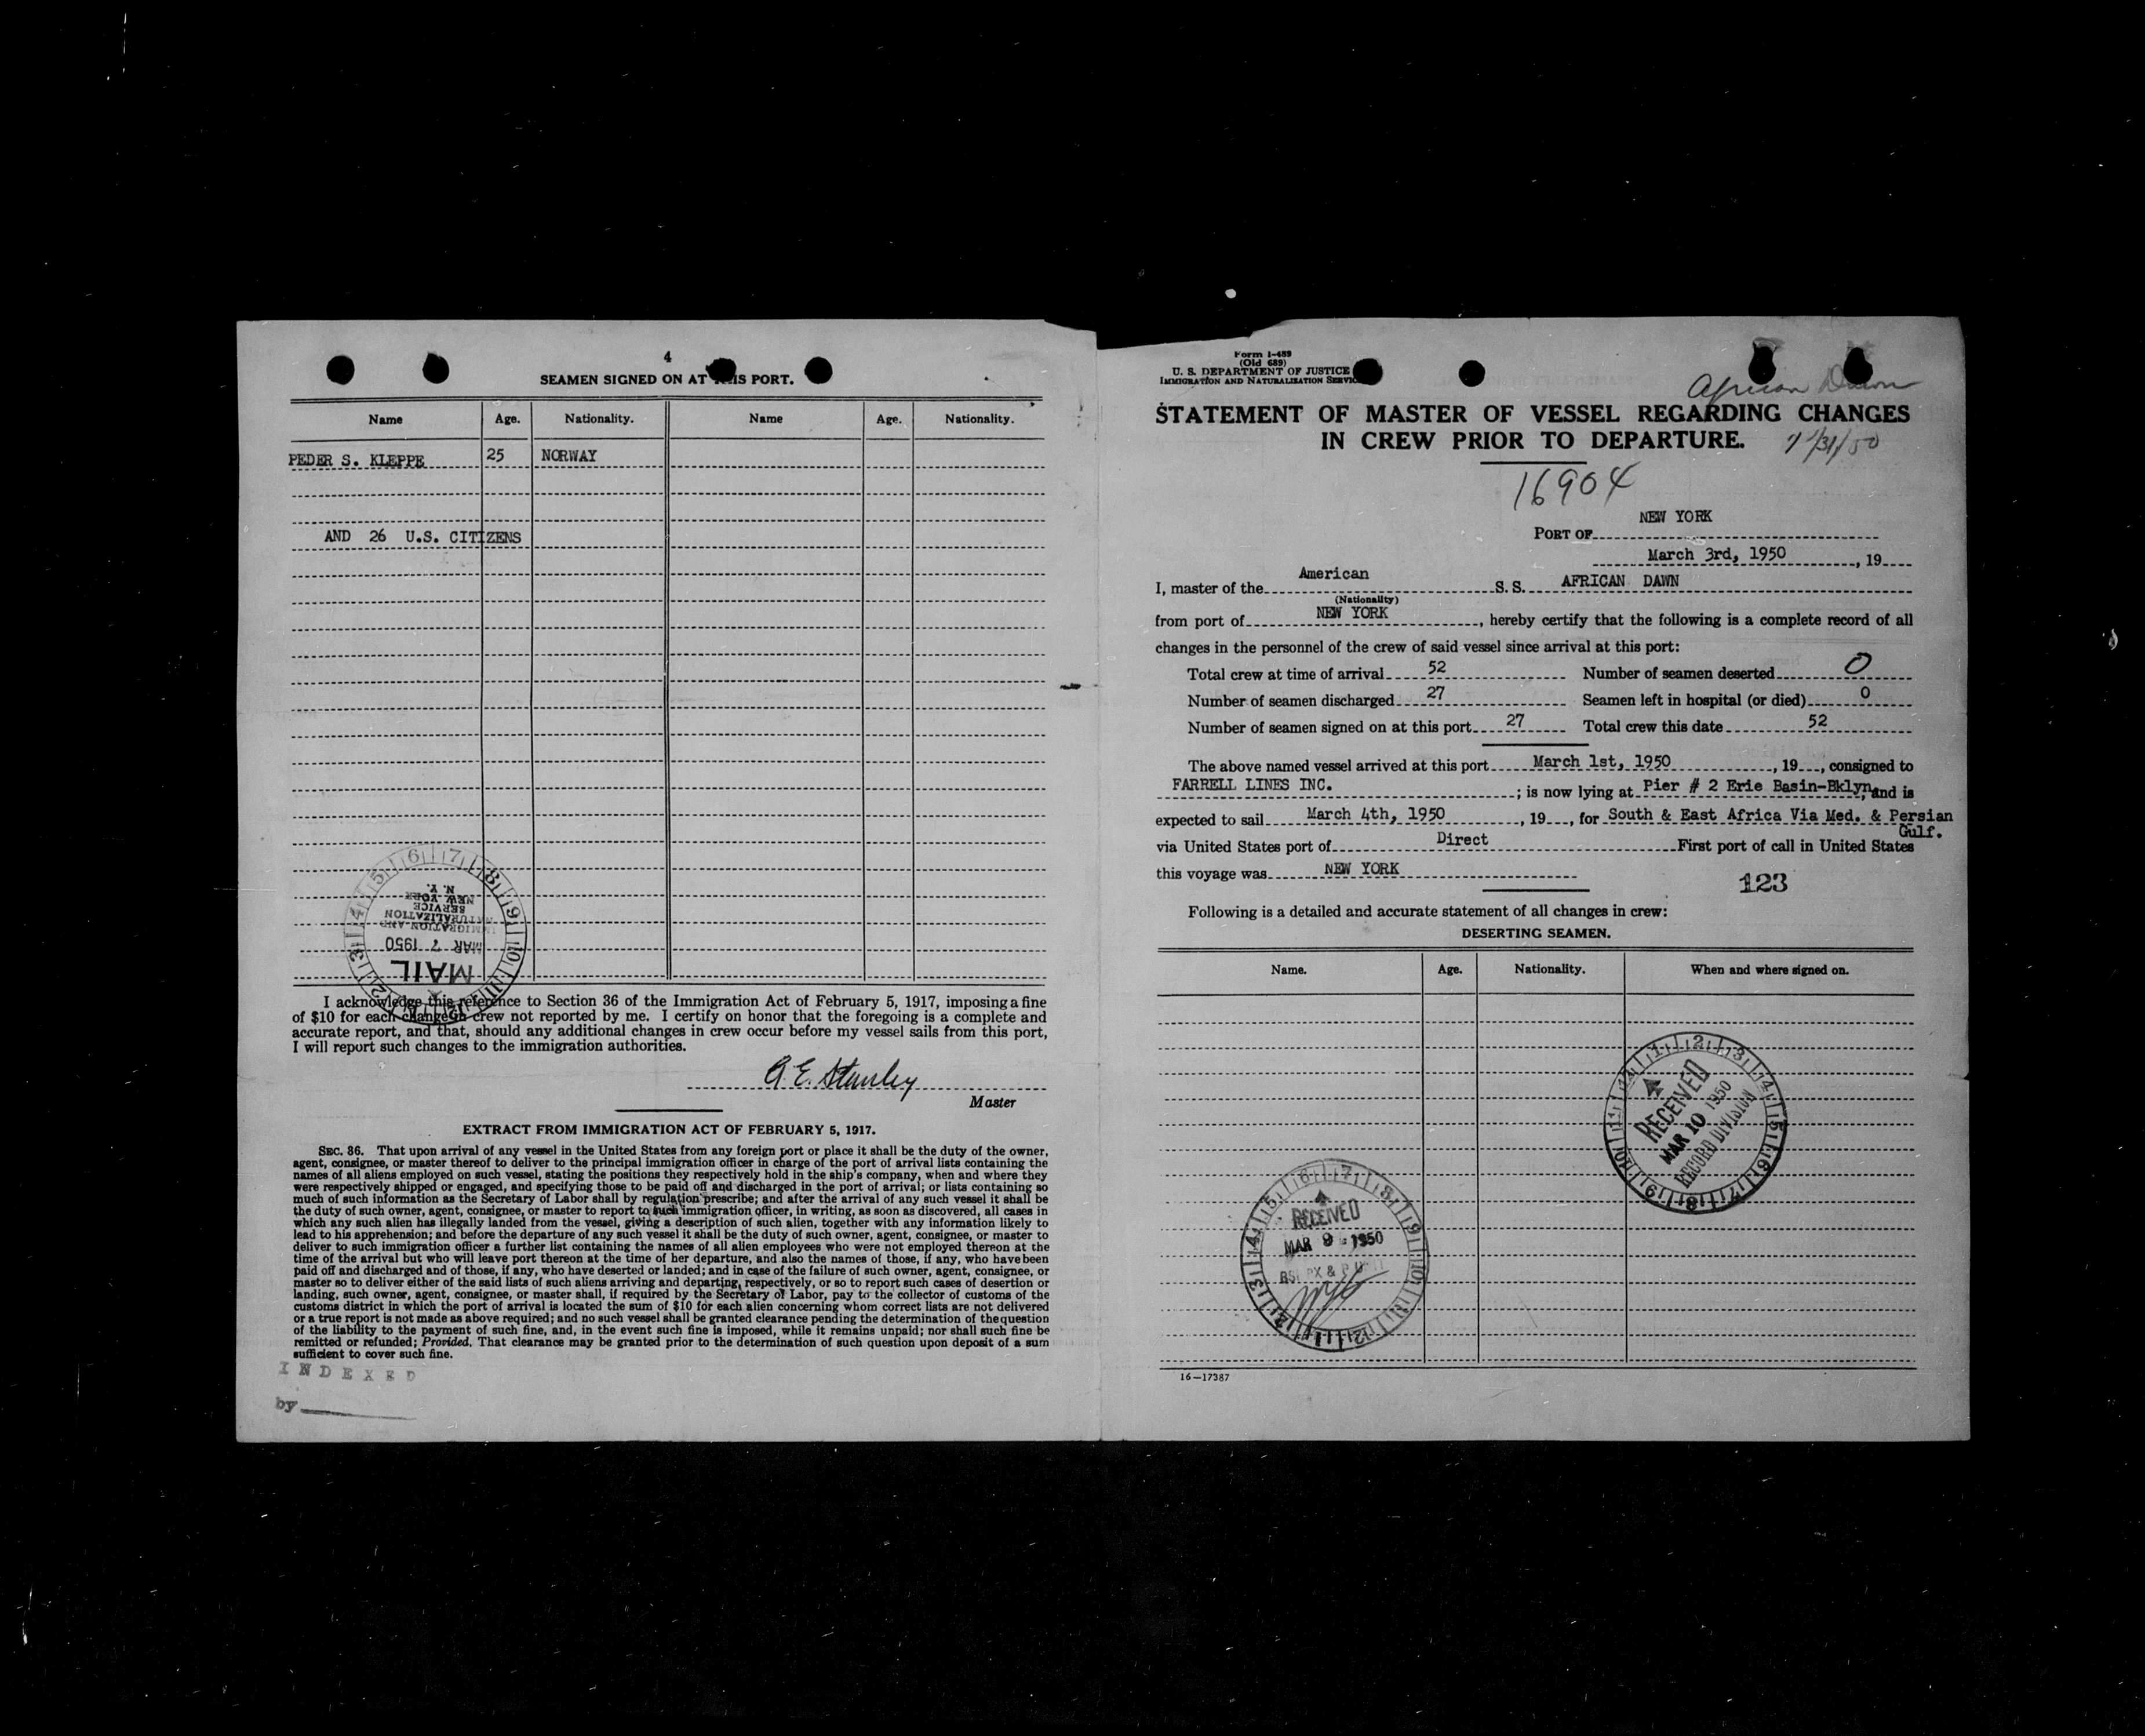 4
SEAMEN SIGNED ON AT THIS PORT.
Name Age. Nationality. Name Age. Nationality.
PEDER S. KLEPPE 25 NORWAY
AND 26 U.S. CITIZENS
MAIL
MAR 7 1950
IMMIGRATION AND
NATURALIZATION
SERVICE
NEW YORK
N. Y.
I acknowledge this reference to Section 36 of the Immigration Act of February 5, 1917, imposing a fine
of $10 for each change in crew not reported by me. I certify on honor that the foregoing is a complete and
accurate report, and that, should any additional changes in crew occur before my vessel sails from this port,
I will report such changes to the immigration authorities.
Stanley
Master
EXTRACT FROM IMMIGRATION ACT OF FEBRUARY 5, 1917.
SEC. 36. That upon arrival of any vessel in the United States from any foreign port or place it shall be the duty of the owner,
agent, consignee, or master thereof to deliver to the principal immigration officer in charge of the port of arrival lists containing the
names of all aliens employed on such vessel, stating the positions they respectively hold in the ship's company, when and where they
were respectively shipped or engaged, and specifying those to be paid off and discharged in the port of arrival; or lists containing so
much of such information as the Secretary of Labor shall by regulation prescribe; and after the arrival of any such vessel it shall be
the duty of such owner, agent, consignee, or master to report to such immigration officer, in writing, as soon as discovered, all cases in
which any such alien has illegally landed from the vessel, giving a description of such alien, together with any information likely to
lead to his apprehension; and before the departure of any such vessel it shall be the duty of such owner, agent, consignee, or master to
deliver to such immigration officer a further list containing the names of all alien employees who were not employed thereon at the
time of the arrival but who will leave port thereon at the time of her departure, and also the names of those, if any, who have been
paid off and discharged and of those, if any, who have deserted or landed; and in case of the failure of such owner, agent, consignee, or
master so to deliver either of the said lists of such aliens arriving and departing, respectively, or so to report such cases of desertion or
landing, such owner, agent, consignee, or master shall, if required by the Secretary of Labor, pay to the collector of customs of the
customs district in which the port of arrival is located the sum of $10 for each alien concerning whom correct lists are not delivered
or a true report is not made as above required; and no such vessel shall be granted clearance pending the determination of the question
of the liability to the payment of such fine, and, in the event such fine is imposed, while it remains unpaid; nor shall such fine be
remitted or refunded; Provided, That clearance may be granted prior to the determination of such question upon deposit of a sum
sufficient to cover such fine.
INDEXED
by
Form I-489
(Old 689)
U. S. DEPARTMENT OF JUSTICE
IMMIGRATION AND NATURALIZATION SERVICE
African Dawn
STATEMENT OF MASTER OF VESSEL REGARDING CHANGES
IN CREW PRIOR TO DEPARTURE.
16904
PORT OF NEW YORK
March 3rd, 1950, 19
I, master of the American S. S. AFRICAN DAWN
(Nationality)
from port of NEW YORK, hereby certify that the following is a complete record of all
changes in the personnel of the crew of said vessel since arrival at this port:
Total crew at time of arrival 52 Number of seamen deserted 0
Number of seamen discharged 27 Seamen left in hospital (or died) 0
Number of seamen signed on at this port 27 Total crew this date 52
The above named vessel arrived at this port March 1st, 1950, 19, consigned to
FARRELL LINES INC. ; is now lying at Pier # 2 Erie Basin-Bklyn, and is
expected to sail March 4th, 1950, 19, for South & East Africa Via Med. & Persian
Gulf.
via United States port of Direct First port of call in United States
this voyage was NEW YORK
123
Following is a detailed and accurate statement of all changes in crew:
DESERTING SEAMEN.
Name. Age. Nationality. When and where signed on.
RECEIVED
MAR 10 1950
RECORD DIVISION
RECEIVED
MAR 9 - 1950
16—17387